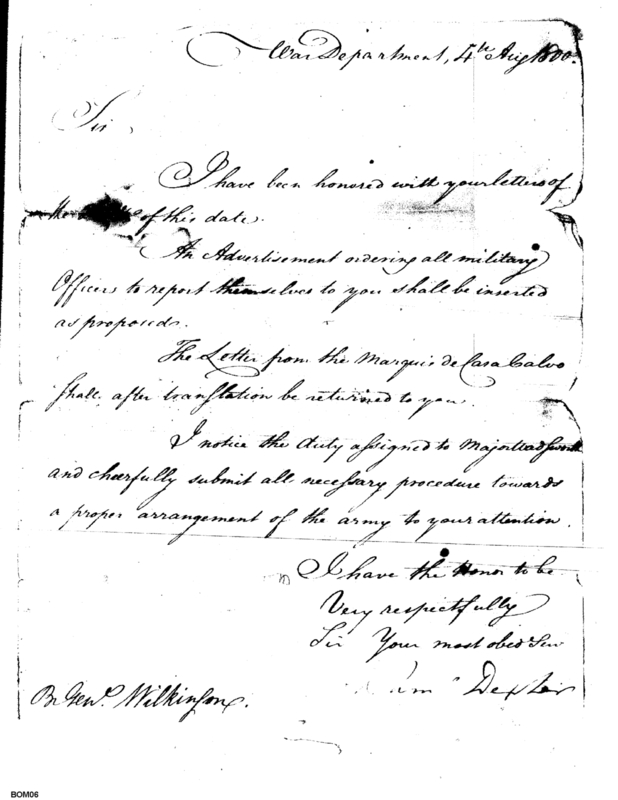 War Department, 4th Aug 1800.
Sir,
I have been honored with your letters of
the of this date.
An Advertisement ordering all military
Officers to report themselves to you shall be inserted
as proposed.
The Letter from the Marquis de Casa Calvo
shall after translation be returned to you.
I notice the duty assigned to Major
and chearfully submit all necessary procedure towards
a proper arrangement of the army to your attention.
I have the Honor to be
Very respectfully
Sir Your most obed Serv
Dexter
Br Genl. Wilkinson.
BOM06